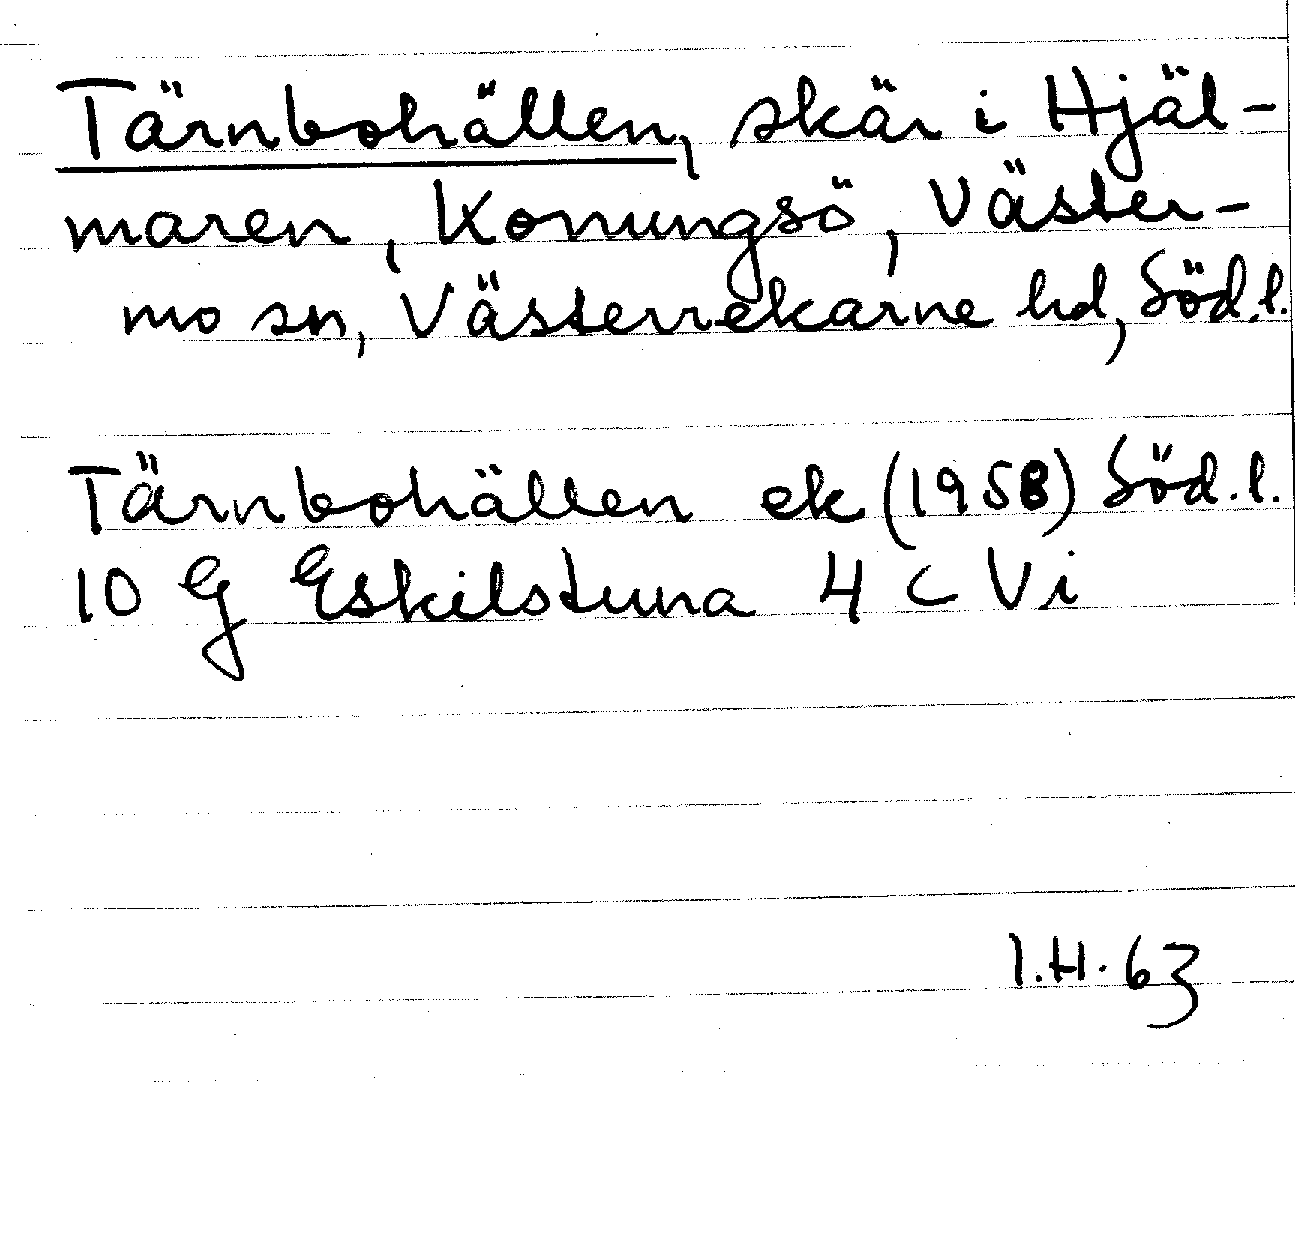 Tärnbohällen, skär i Hjäl-
maren, Konungsö, Väster-
mo sn, Västerrekarne hd, Söd.l.
Tärnbohällen ek (1958) Söd.l.
10 G Eskilstuna 4 c Vi
I.H. 63